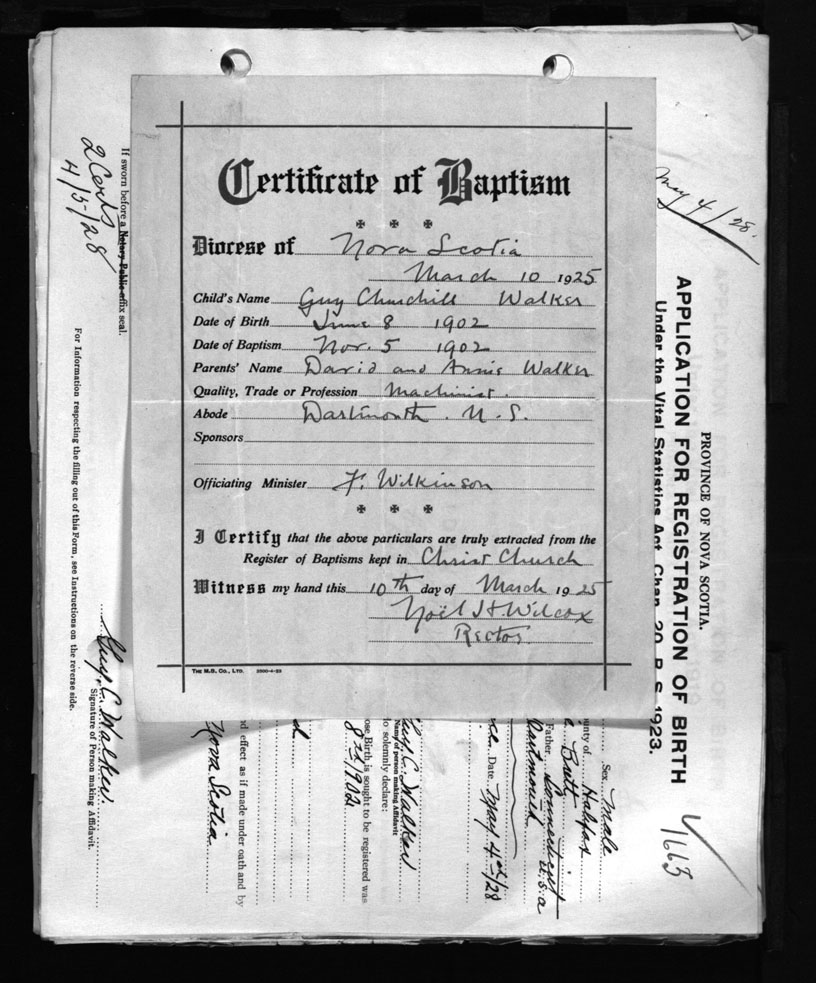 Certificate of Baptism
Diocese of Nova Scotia
March 10 1925
Child's Name Guy Churchill Walker
Date of Birth June 8 1902
Date of Baptism Nov. 5 1902
Parents' Name David and Annie Walker
Quality, Trade or Profession Machinist.
Abode Dartmouth. N. S.
Sponsors
Officiating Minister F. Wilkinson
I Certify that the above particulars are truly extracted from the
Register of Baptisms kept in Christ Church
Witness my hand this 10th day of March 1925
Noël H Wilcox
Rector
THE M.B. CO., LTD. 2500-4-23
May 4/28.
PROVINCE OF NOVA SCOTIA.
APPLICATION FOR REGISTRATION OF BIRTH
Under the Vital Statistics Act, Chap. 20 R. S. 1923.
1663
Sex, Male
unty of Halifax
Brett
Father, Connecticut U.S.a
Dartmouth
nce. Date May 4th/28
Guy C. Walker
Name of person making Affidavit
do solemnly declare:
ose Birth is sought to be registered was
8th 1902
d
nd effect as if made under oath and by
Nova Scotia
Guy. C. Walker.
Signature of Person making Affidavit.
If sworn before a Notary Public affix seal.
2 Certs
4/5-/28
For Information respecting the filling out of this Form, see Instructions on the reverse side.